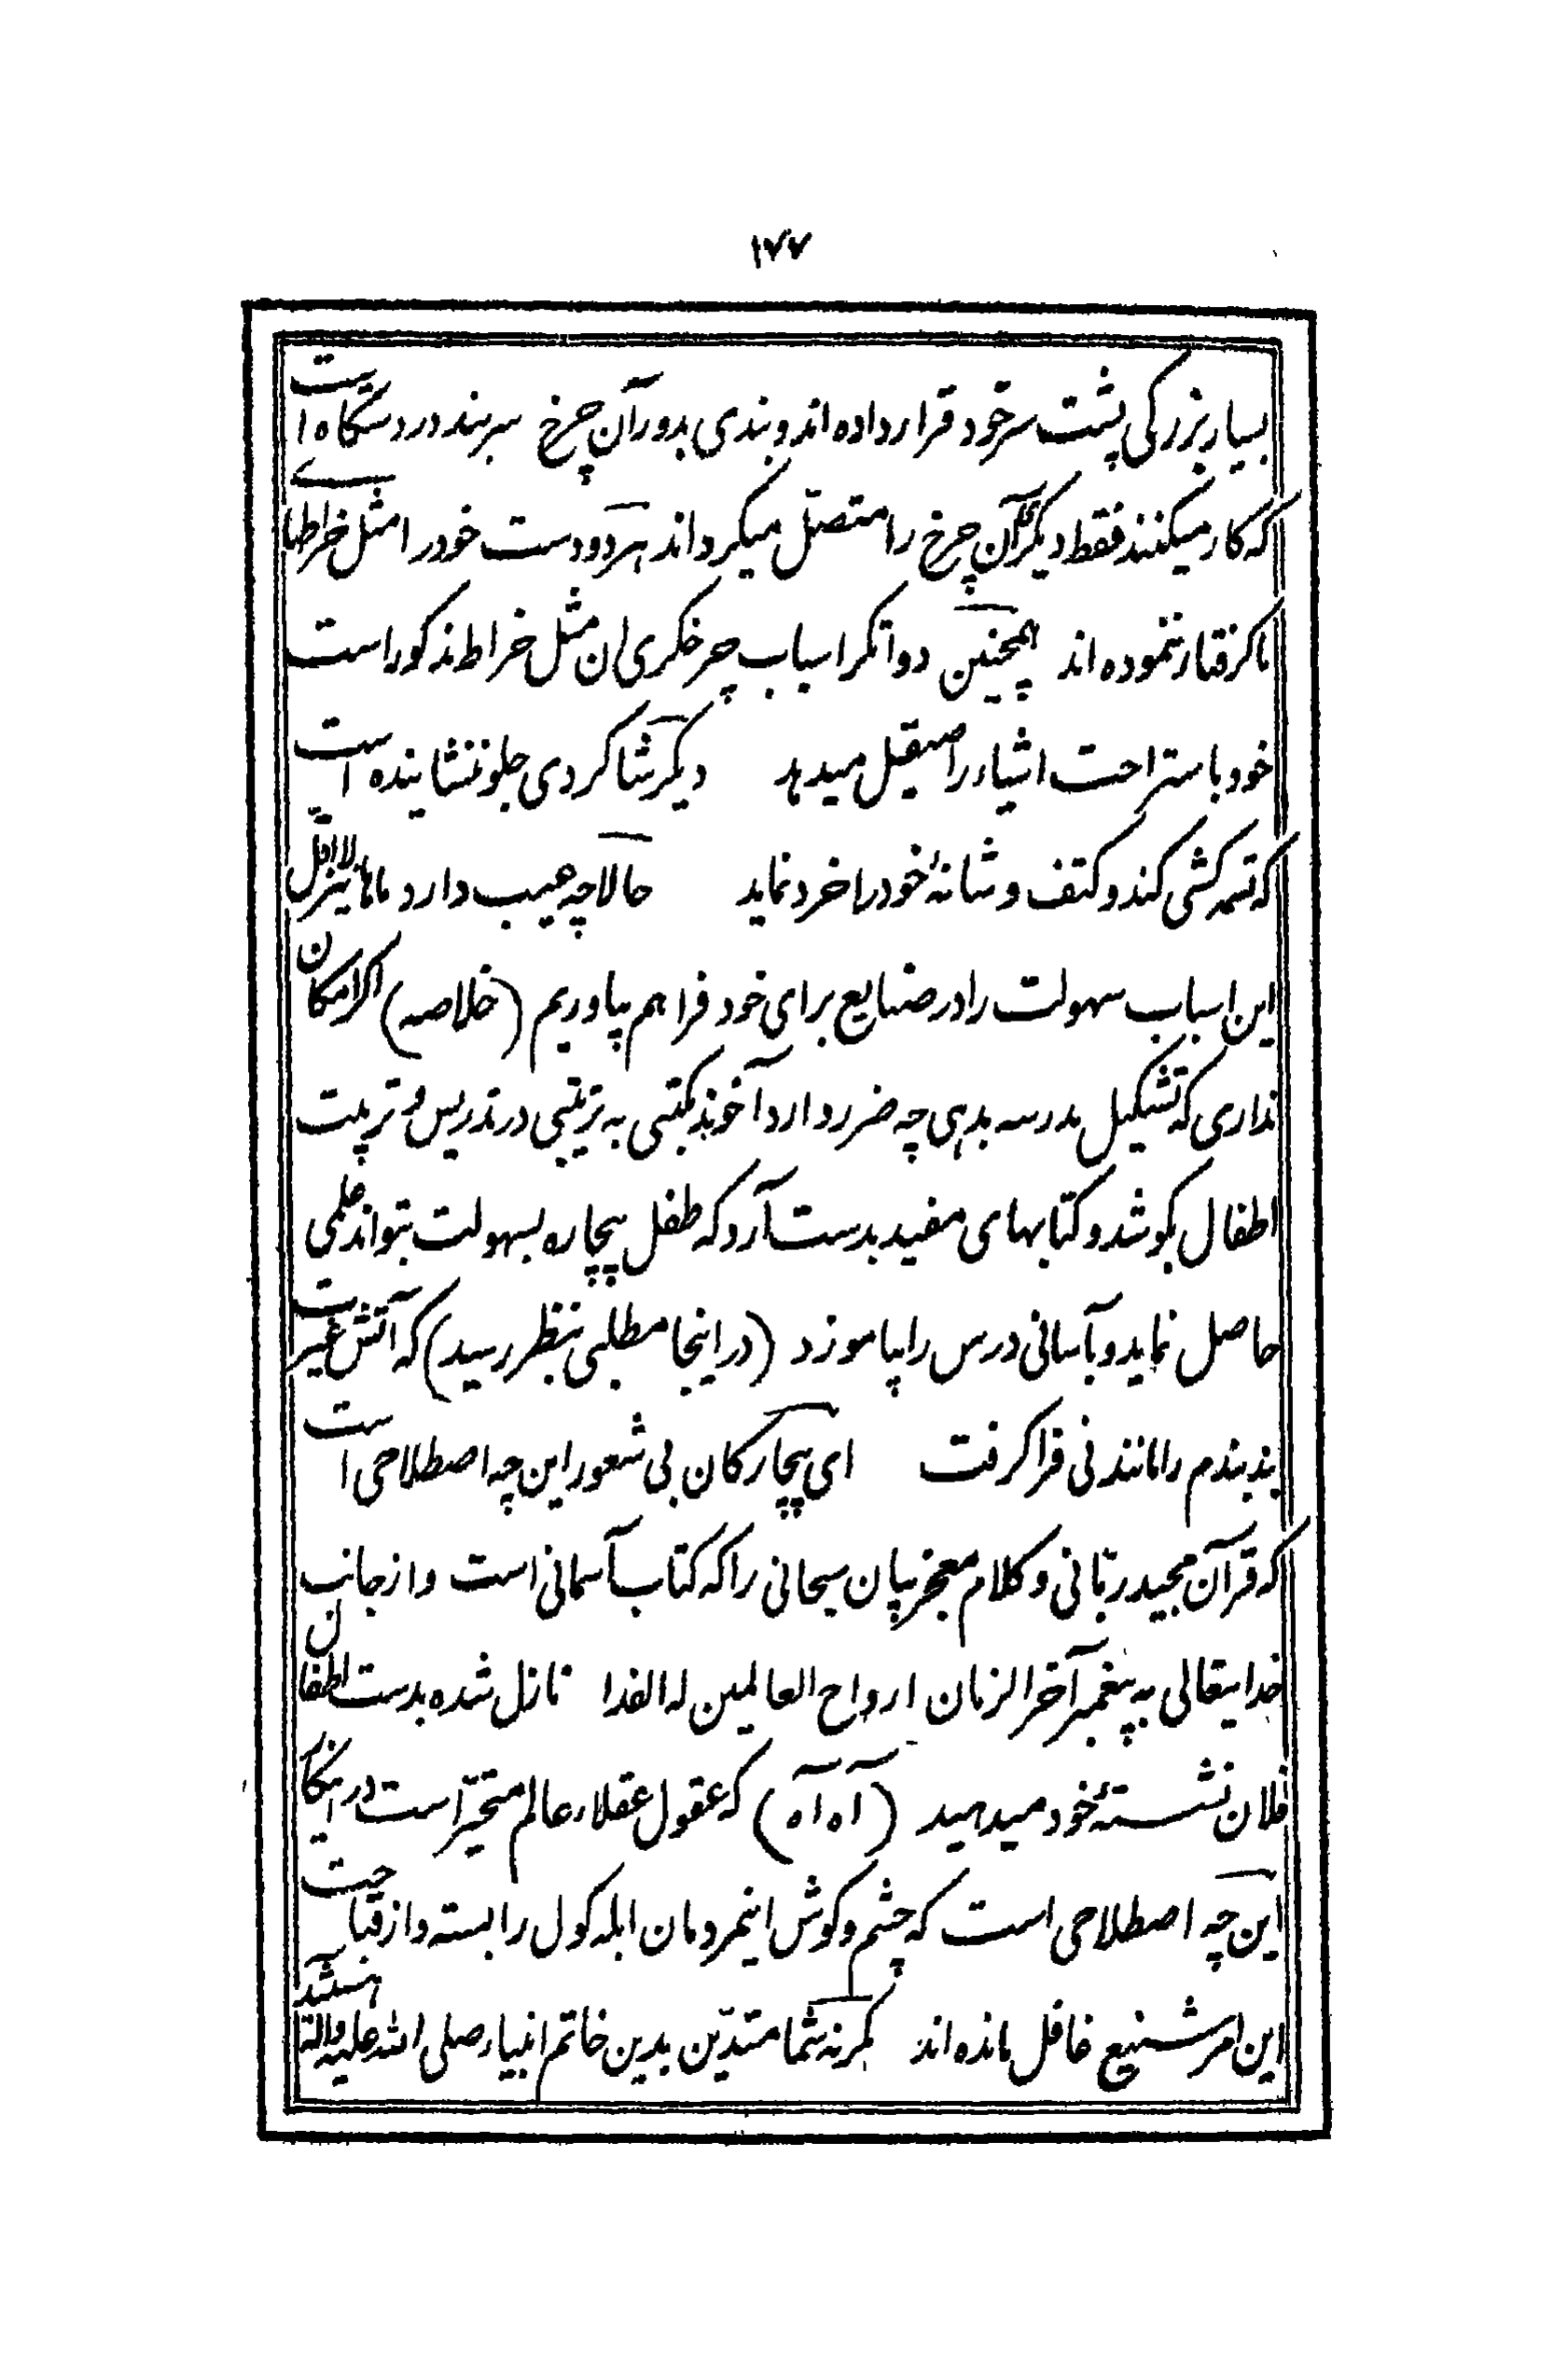 ۱۷۷
بسیار بزرکی پشت سر خود قرار داده‌اند و بندی بدور آن چرخ سر بند در دستکاه است
که کار میکنند فقط دیکر آن چرخ را متصل میکرداند هر دو دست خود را مثل خراطهای
ما کرفتار ننموده‌اند همچنین دواتکر اسباب چرخکری ان مثل خراط مذکور است
خود باستراحت اشیاء را صیقل میدهد دیکر شاکردی جلو ننشاینده است
که تسمه کشی کند و کتف و شانهٔ خود را خرد نماید حالا چه عیب دارد ماها نیز لا اقل
این اسباب سهولت را در صنایع برای خود فراهم بیاوریم (خلاصه) اکر امکان
نداری که تشکیل مدرسه بدهی چه ضرر دارد آخوند مکتبی به ترتیبی در تدریس و تربیت
اطفال بکوشد و کتابهای مفید بدست آرد که طفل بیچاره بسهولت بتواند علمی
حاصل نماید و بآسانی درس را بیاموزد (در اینجا مطلبی بنظر رسید) که آتش غیرت
بند بندم را مانند نی فرا کرفت ای بیچارکان بی شعور این چه اصطلاحی است
که قرآن مجید ربّانی و کلام معجز بیان سبحانی را که کتاب آسمانی است و از جانب
خدایتعالی به پیغمبر آخر الزمان ارواح العالمین له الفدا نازل شده بدست اطفال
فلان نشستهٔ خود میدهید (آه آه) که عقول عقلاء عالم متحیّر است در اینکار
این چه اصطلاحی است که چشم و کوش اینمردمان ابله کول را بسته و از قباحت
این امر شنیع غافل مانده‌اند مکر نه شما متدیّن بدین خاتم انبیاء صلی الله علیه وآله هستید